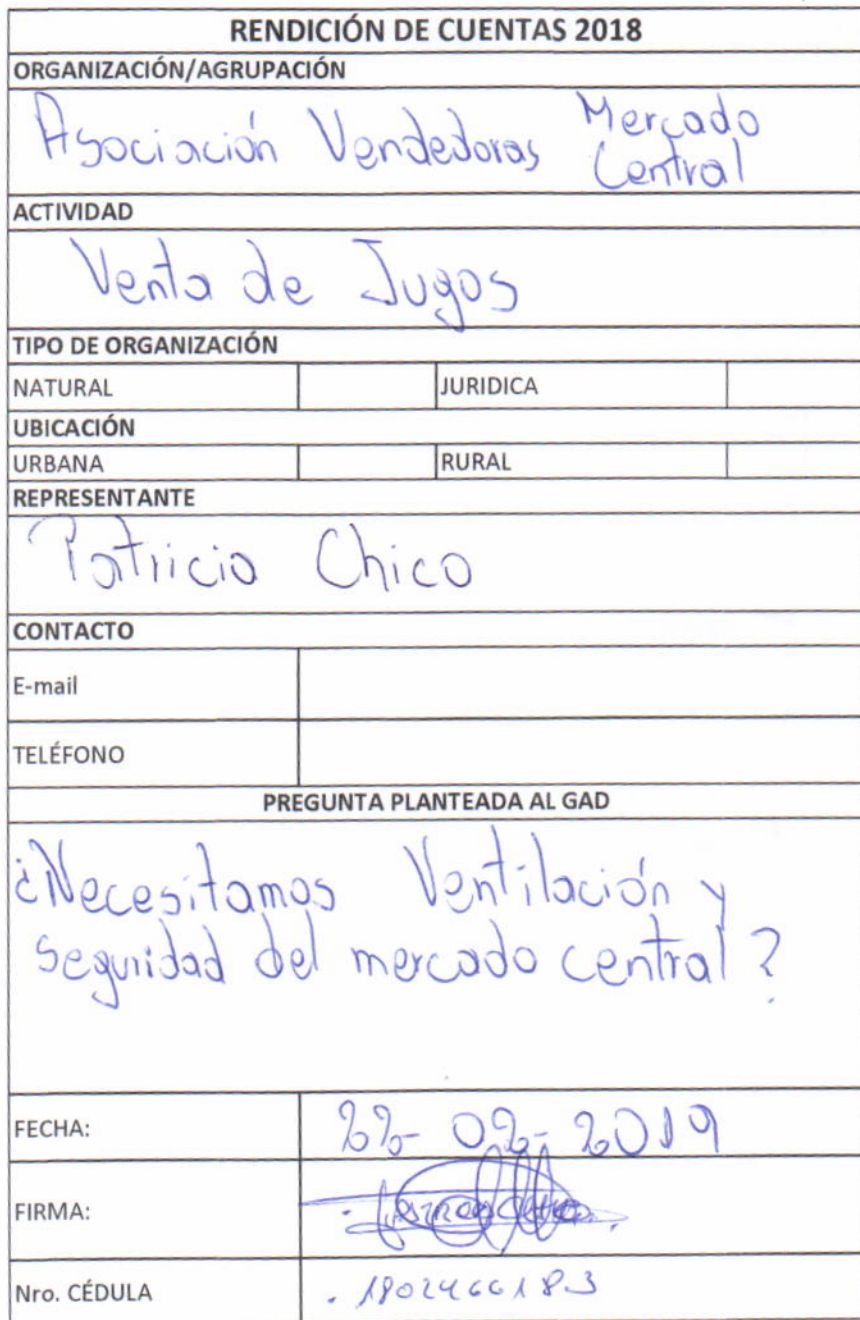 RENDICIÓN DE CUENTAS 2018
ORGANIZACIÓN/AGRUPACIÓN
Asociación Vendedoras Mercado
Central
ACTIVIDAD
Venta de Jugos
TIPO DE ORGANIZACIÓN
NATURAL JURIDICA
UBICACIÓN
URBANA RURAL
REPRESENTANTE
Patricia Chico
CONTACTO
E-mail
TELÉFONO
PREGUNTA PLANTEADA AL GAD
¿Necesitamos Ventilación y
seguridad del mercado central?
FECHA: 22-02-2019
FIRMA:
Nro. CÉDULA 1802466183